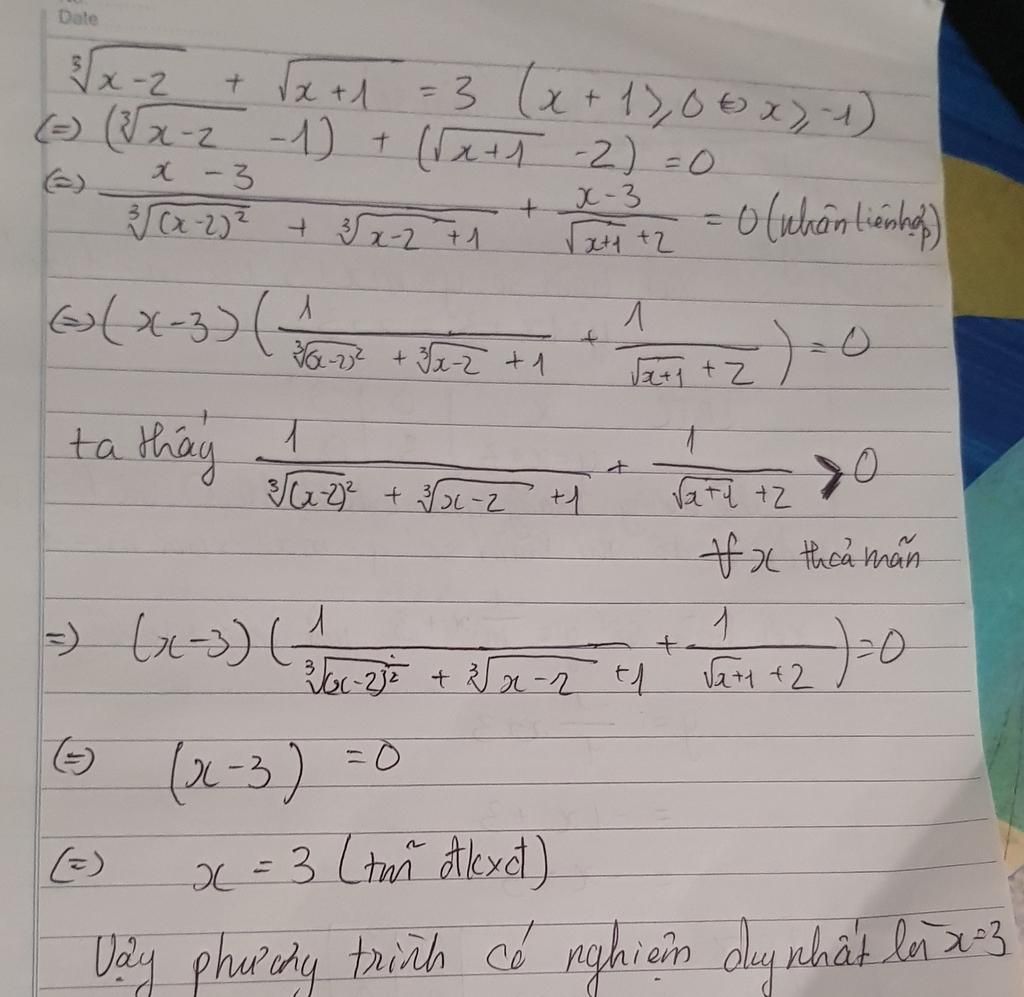 Date
∛(x-2) + √(x+1) = 3 (x+1 ≥ 0 ⇔ x ≥ -1)
(=) (∛(x-2) -1) + (√(x+1) -2) = 0
(=) (x-3)/(∛((x-2)²) + ∛(x-2) +1) + (x-3)/(√(x+1) +2) = 0 (nhân liên hợp)
(=) (x-3)(1/(∛((x-2)²) + ∛(x-2) +1) + 1/(√(x+1) +2)) = 0
ta thấy 1/(∛((x-2)²) + ∛(x-2) +1) + 1/(√(x+1) +2) > 0
∀ x thoả mãn
=) (x-3)(1/(∛((x-2)²) + ∛(x-2) +1) + 1/(√(x+1) +2)) = 0
(=) (x-3) = 0
(=) x = 3 (tm̃ đkxđ)
Vậy phương trình có nghiệm duy nhất là x=3